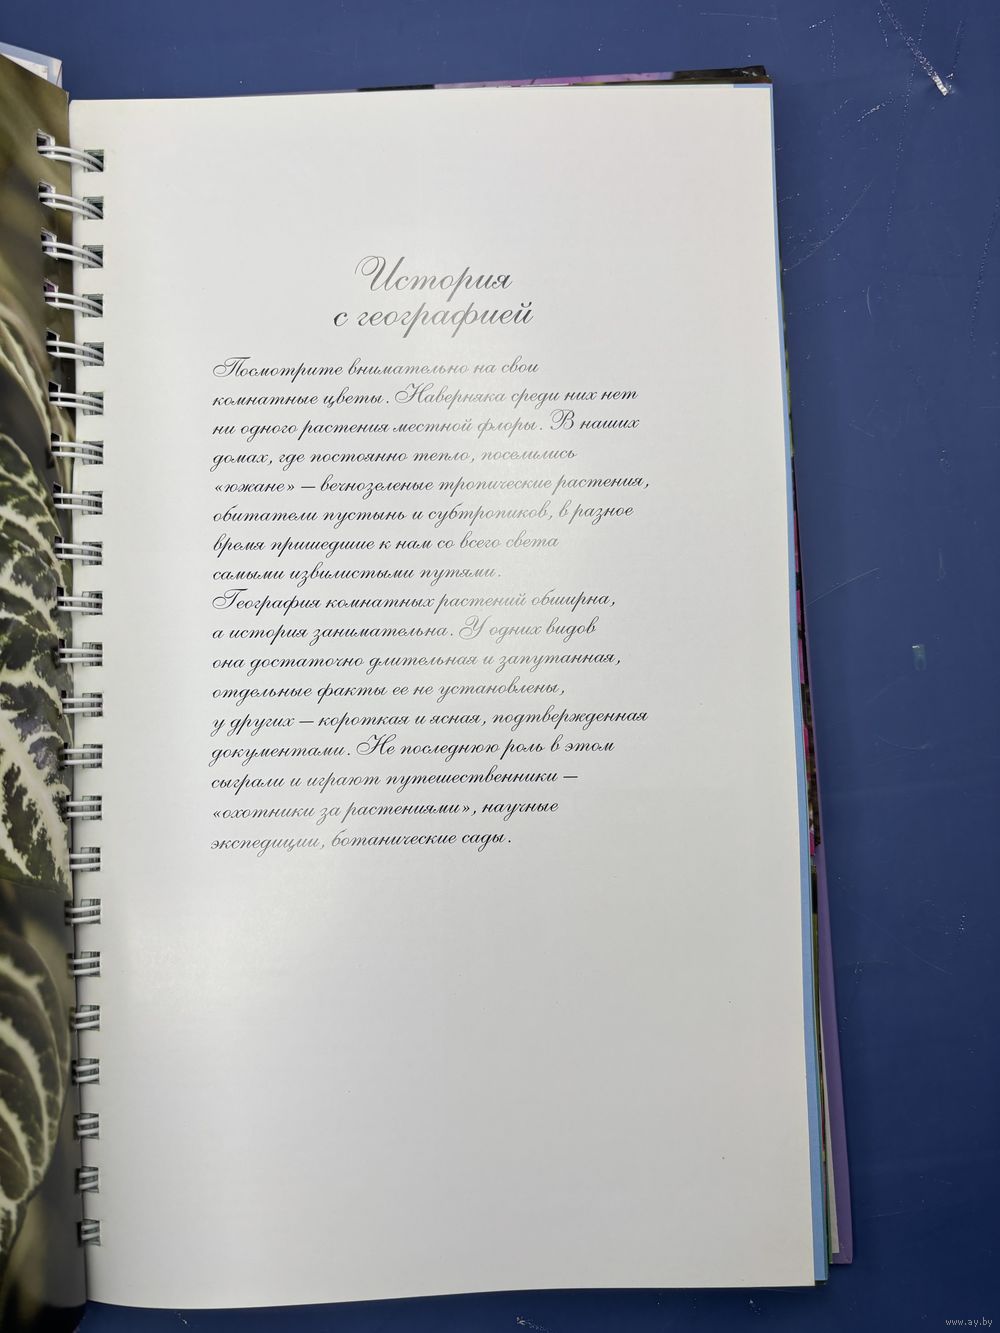 История
с географией
Посмотрите внимательно на свои
комнатные цветы. Наверняка среди них нет
ни одного растения местной флоры. В наших
домах, где постоянно тепло, поселились
«южане» – вечнозеленые тропические растения,
обитатели пустынь и субтропиков, в разное
время пришедшие к нам со всего света
самыми извилистыми путями.
География комнатных растений обширна,
а история занимательна. У одних видов
она достаточно длительная и запутанная,
отдельные факты ее не установлены,
у других – короткая и ясная, подтвержденная
документами. Не последнюю роль в этом
сыграли и играют путешественники –
«охотники за растениями», научные
экспедиции, ботанические сады.
www.ay.by